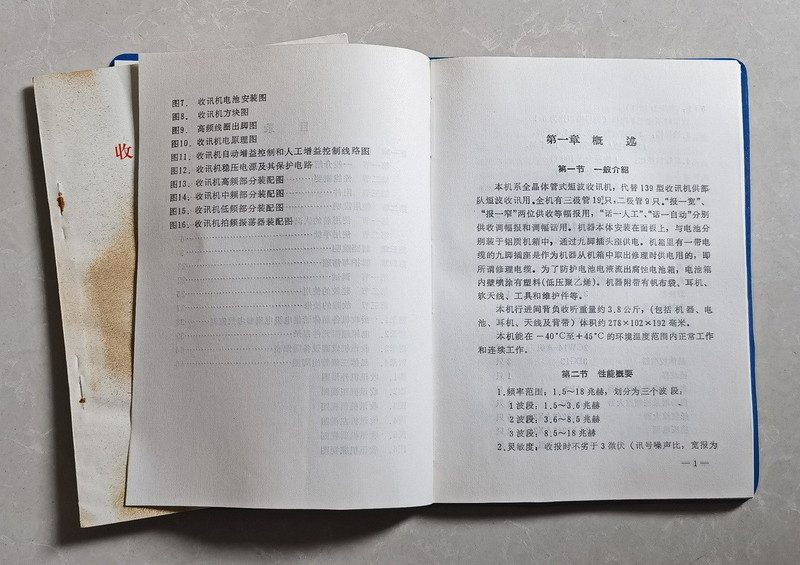 收
图7． 收讯机电池安装图
图8． 收讯机方块图
图9． 高频线圈出脚图
图10．收讯机电原理图
图11．收讯机自动增益控制和人工增益控制线路图
图12．收讯机稳压电源及其保护电路
图13．收讯机高频部分装配图
图14．收讯机中频部分装配图
图15．收讯机低频部分装配图
图16．收讯机拍频振荡器装配图
第一章 概 述
第一节 一般介绍
本机系全晶体管式短波收讯机，代替139型收讯机供部
队短波收讯用。全机有三极管19只，二极管9只。“报一宽”、
“报一窄”两位供收等幅报用，“话一人工”、“话一自动”分别
供收调幅报和调幅话用。机器本体安装在面板上，与电池分
别装于铝质机箱中，通过九脚插头座供电。机箱里有一带电
缆的九脚插座是作为机器从机箱中取出修理时供电用的，即
所谓修理电缆。为了防护电池电液流出腐蚀电池箱，电池箱
内壁喷涂有塑料(低压聚乙烯)。机器附带有帆布袋、耳机、
软天线、工具和维护件等。
本机行进间背负收听重量约3.8公斤，(包括机器、电
池、耳机、天线及背带)体积约278×102×192毫米。
本机能在－40°C至＋45°C的环境温度范围内正常工作
和连续工作。
第二节 性能概要
1.频率范围：1.5～18兆赫，划分为三个波段：
1波段：1.5～3.6兆赫
2波段：3.6～8.5兆赫
3波段：8.5～18兆赫
2.灵敏度：收报时不劣于3微伏（讯号噪声比，宽报为
—1—